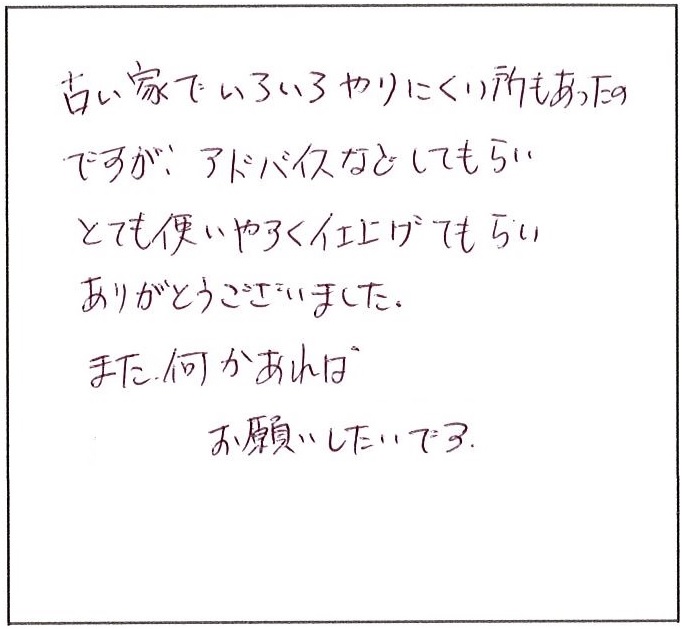 古い家でいろいろやりにくい所もあったの
ですが、アドバイスなどしてもらい
とても使いやすく仕上げてもらい
ありがとうございました.
また.何かあれば
お願いしたいです.